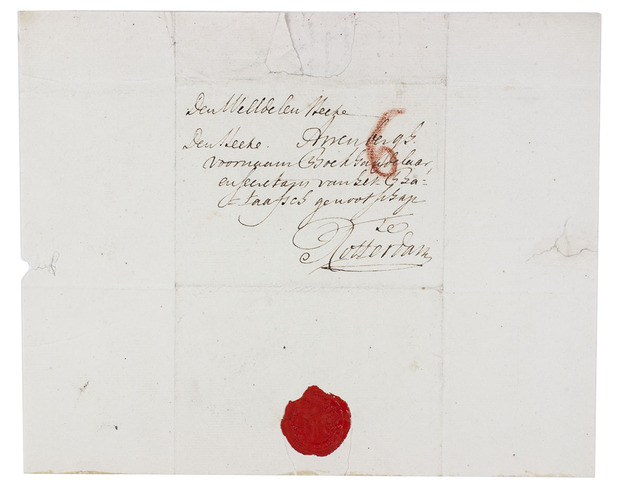 Den WelEdelen Heere
Den Heere. Arrenbergh.
voornaam Boekhandelaar
en secretaris van het Ba-
taafsch genootschap
te
Rotterdam
6